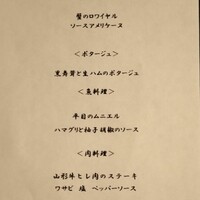 蟹のロワイヤル
ソースアメリケーヌ
<ポタージュ>
黒寿茸と生ハムのポタージュ
<魚料理>
平目のムニエル
ハマグリと柚子胡椒のソース
<肉料理>
山形牛ヒレ肉のステーキ
ワサビ 塩 ペッパーソース